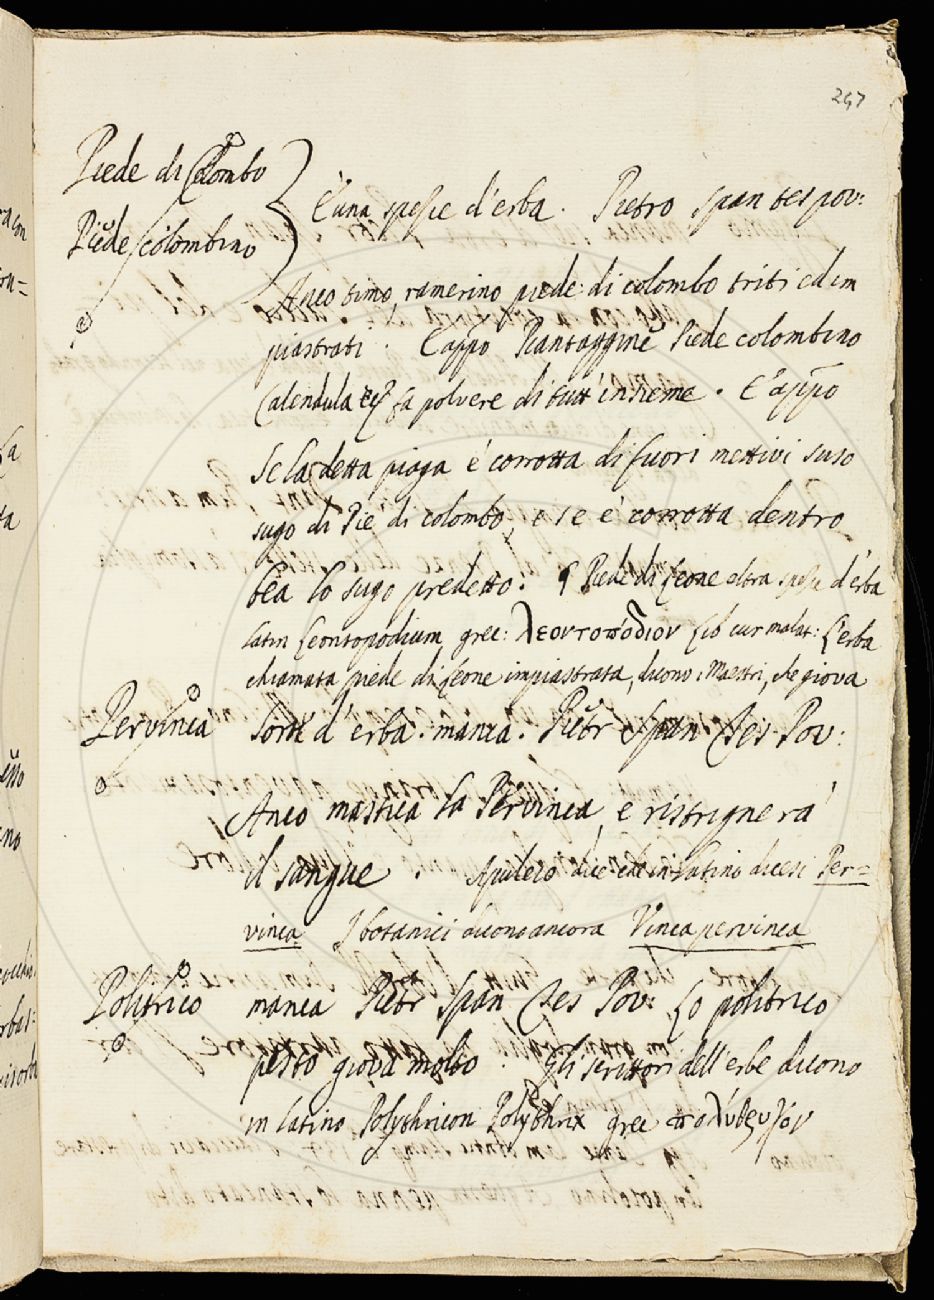 247
Piede di Colombo
Piede colombino
È una spesie d'erba. Pietro Span tes pov:
Anco timo, ramerino piede di colombo triti ed im
piastrati. E appo Piantaggine Piede colombino
Calendula fa polvere di tutt'insieme. E appo
Se la detta piaga è corrotta di fuori mettivi suso
sugo di Piè di colombo, e se è corrotta dentro
bea lo sugo predetto: ¶ Piede di Leone altra spesie d'erba
latin Leontopodium grec: λεοντοπόδιον Lib cur malat: L'erba
chiamata piede di Leone impiastrata, dicono i Maestri, che giova
Pervinca
Sorta d'erba. manca. Pietr Span Tes Pov:
Anco mastica la Pervinca, e ristrignerà
il sangue Apuleio dice che in latino dicesi Per=
vinca I botanici dicono ancora Vinca pervinca
Politrico
manca Pietr Span Tes Pov: Lo politrico
pesto giova molto. Gli scrittori dell'erbe dicono
in latino Polythricon Polythrix grec